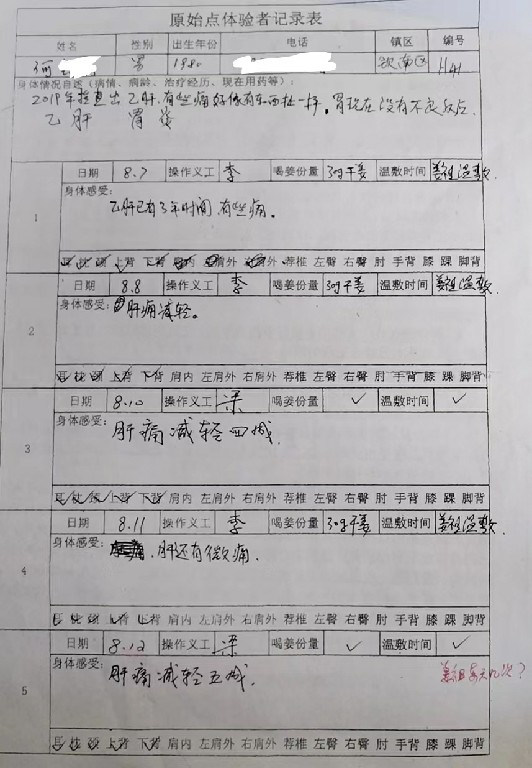 原始点体验者记录表
姓名 性别 出生年份 电话 镇区 编号
何 男 1980 钦南区 H41
身体情况自述（病情、病龄、治疗经历、现在用药等）：
2018年检查出乙肝,有些痛好像有东西扯一样,胃现在没有不良反应.
乙肝 胃
日期 8.7 操作义工 李 喝姜份量 30g干姜 温敷时间 姜祖温敷
身体感受：
1 乙肝已有3年时间,有些痛。
耳 枕 颈 上背 下背 肩内 左肩外 右肩外 荐椎 左臀 右臀 肘 手背 膝 踝 脚背
日期 8.8 操作义工 李 喝姜份量 30g干姜 温敷时间 姜祖温敷
身体感受：肝痛减轻。
2
耳 枕 颈 上背 下背 肩内 左肩外 右肩外 荐椎 左臀 右臀 肘 手背 膝 踝 脚背
日期 8.10 操作义工 梁 喝姜份量 ✓ 温敷时间 ✓
身体感受：肝痛减轻四成.
3
耳 枕 颈 上背 下背 肩内 左肩外 右肩外 荐椎 左臀 右臀 肘 手背 膝 踝 脚背
日期 8.11 操作义工 李 喝姜份量 30g干姜 温敷时间 姜祖温敷
身体感受：肝还有微痛.
4
耳 枕 颈 上背 下背 肩内 左肩外 右肩外 荐椎 左臀 右臀 肘 手背 膝 踝 脚背
日期 8.12 操作义工 梁 喝姜份量 ✓ 温敷时间 ✓
身体感受：肝痛减轻五成. 每天几次?
5
耳 枕 颈 上背 下背 肩内 左肩外 右肩外 荐椎 左臀 右臀 肘 手背 膝 踝 脚背